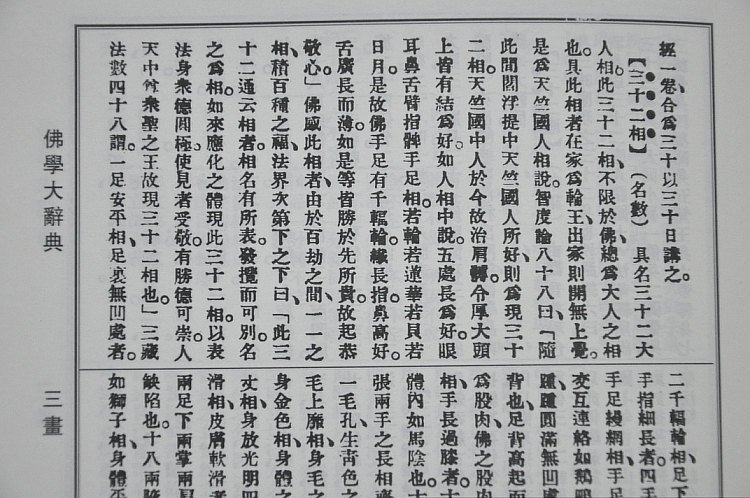 經一卷合爲三十以三十日講之。
【三十二相】（名數）具名三十二大
人相此三十二相不限於佛、總爲大人之相
也。具此相者在家爲輪王出家則開無上覺。
是爲天竺國人相說。智度論八十八曰、「隨
此間閻浮提中天竺國人所好則爲現三十
二相。天竺國中人於今故治肩髆令厚大頭
上皆有結爲好。如人相中說。五處長爲好眼
耳鼻舌臂指髀手足相。若輪若蓮華若貝若
日月。是故佛手足有千輻輪、纖長指、鼻高好。
舌廣長而薄。如是等皆勝於先所貴故起恭
敬心」佛感此相者、由於百劫之間一一之
相、積百種之福。法界次第下之下曰、「此三
十二通云相者、相名有所表。發攬而可別。名
之爲相。如來應化之體現此三十二相。以表
法身衆德圓極。使見者受敬有勝德可崇人
天中尊衆聖之王故現三十二相也」三藏
法數四十八謂。一足安平相、足裏無凹處者。
二千輻輪相、足下
手指細長者。四手
手足縵網相、手足
交互連絡如鵝鴨
踵、踵圓滿無凹處
背也、足背高起而
爲股肉、佛之股肉
相、手長過膝者。十
體內如馬陰也。十
張兩手之長相齊
一毛孔、生靑色之
毛上靡相、身毛之
身金色相、身體之
丈相、身放光明四
滑相、皮膚軟滑者
兩足下兩掌兩肩
缺陷也。十八兩腋
如獅子相、身體平
佛學大辭典
三畫